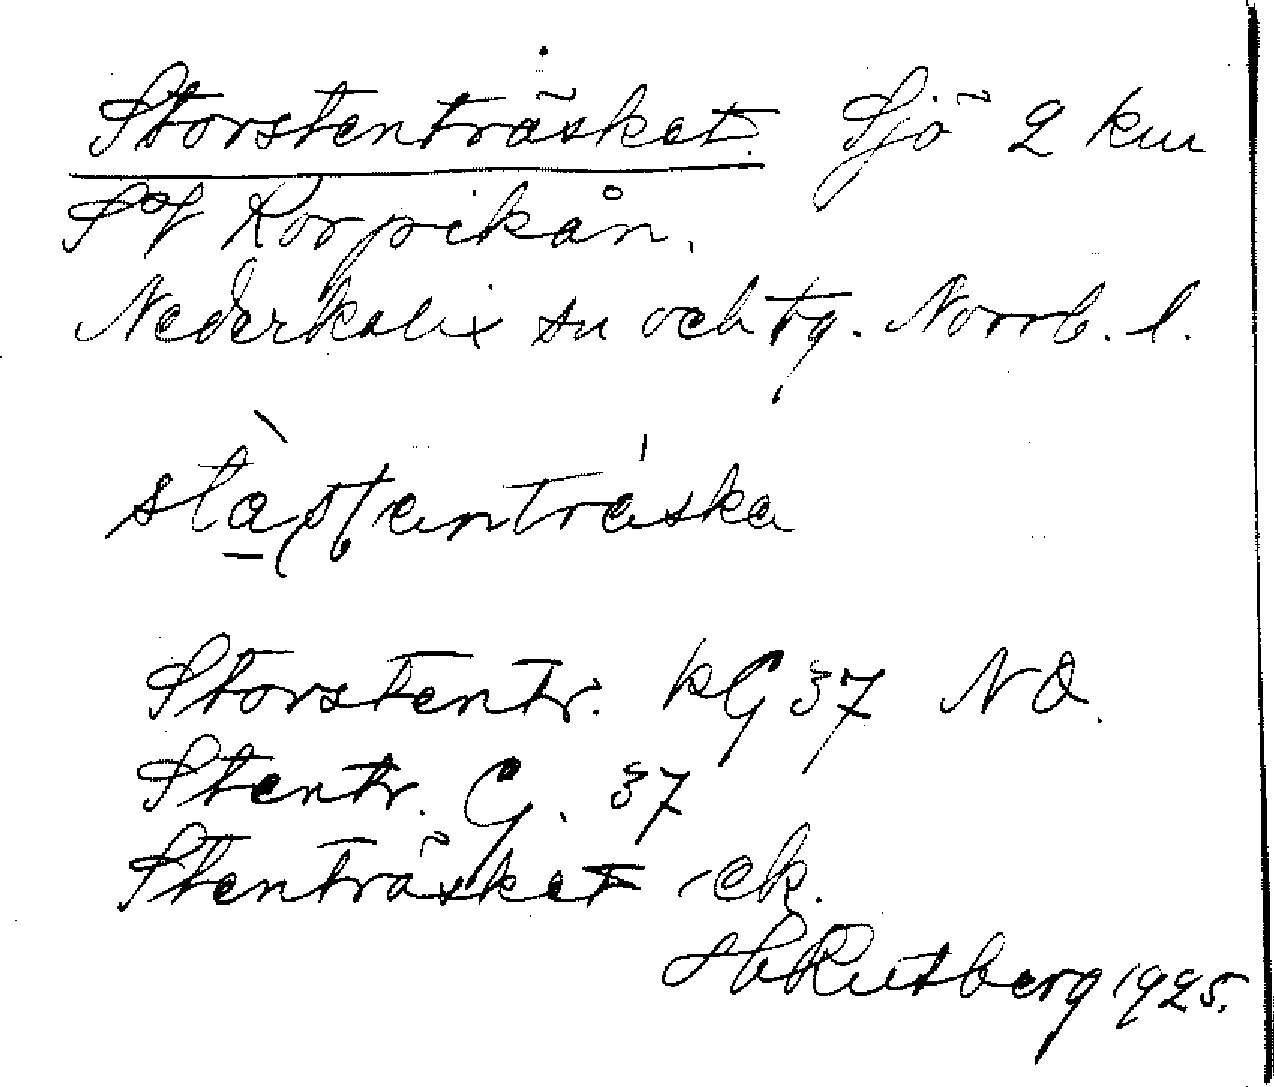 Storstenträsket. Sjö 2 km
S of Korpikån.
Nederkalix sn och tg. Norrb. l.
Storstentr. kG 37 NO.
Stentr. G. 37
Stenträsket -ek.
H Rutberg 1925.